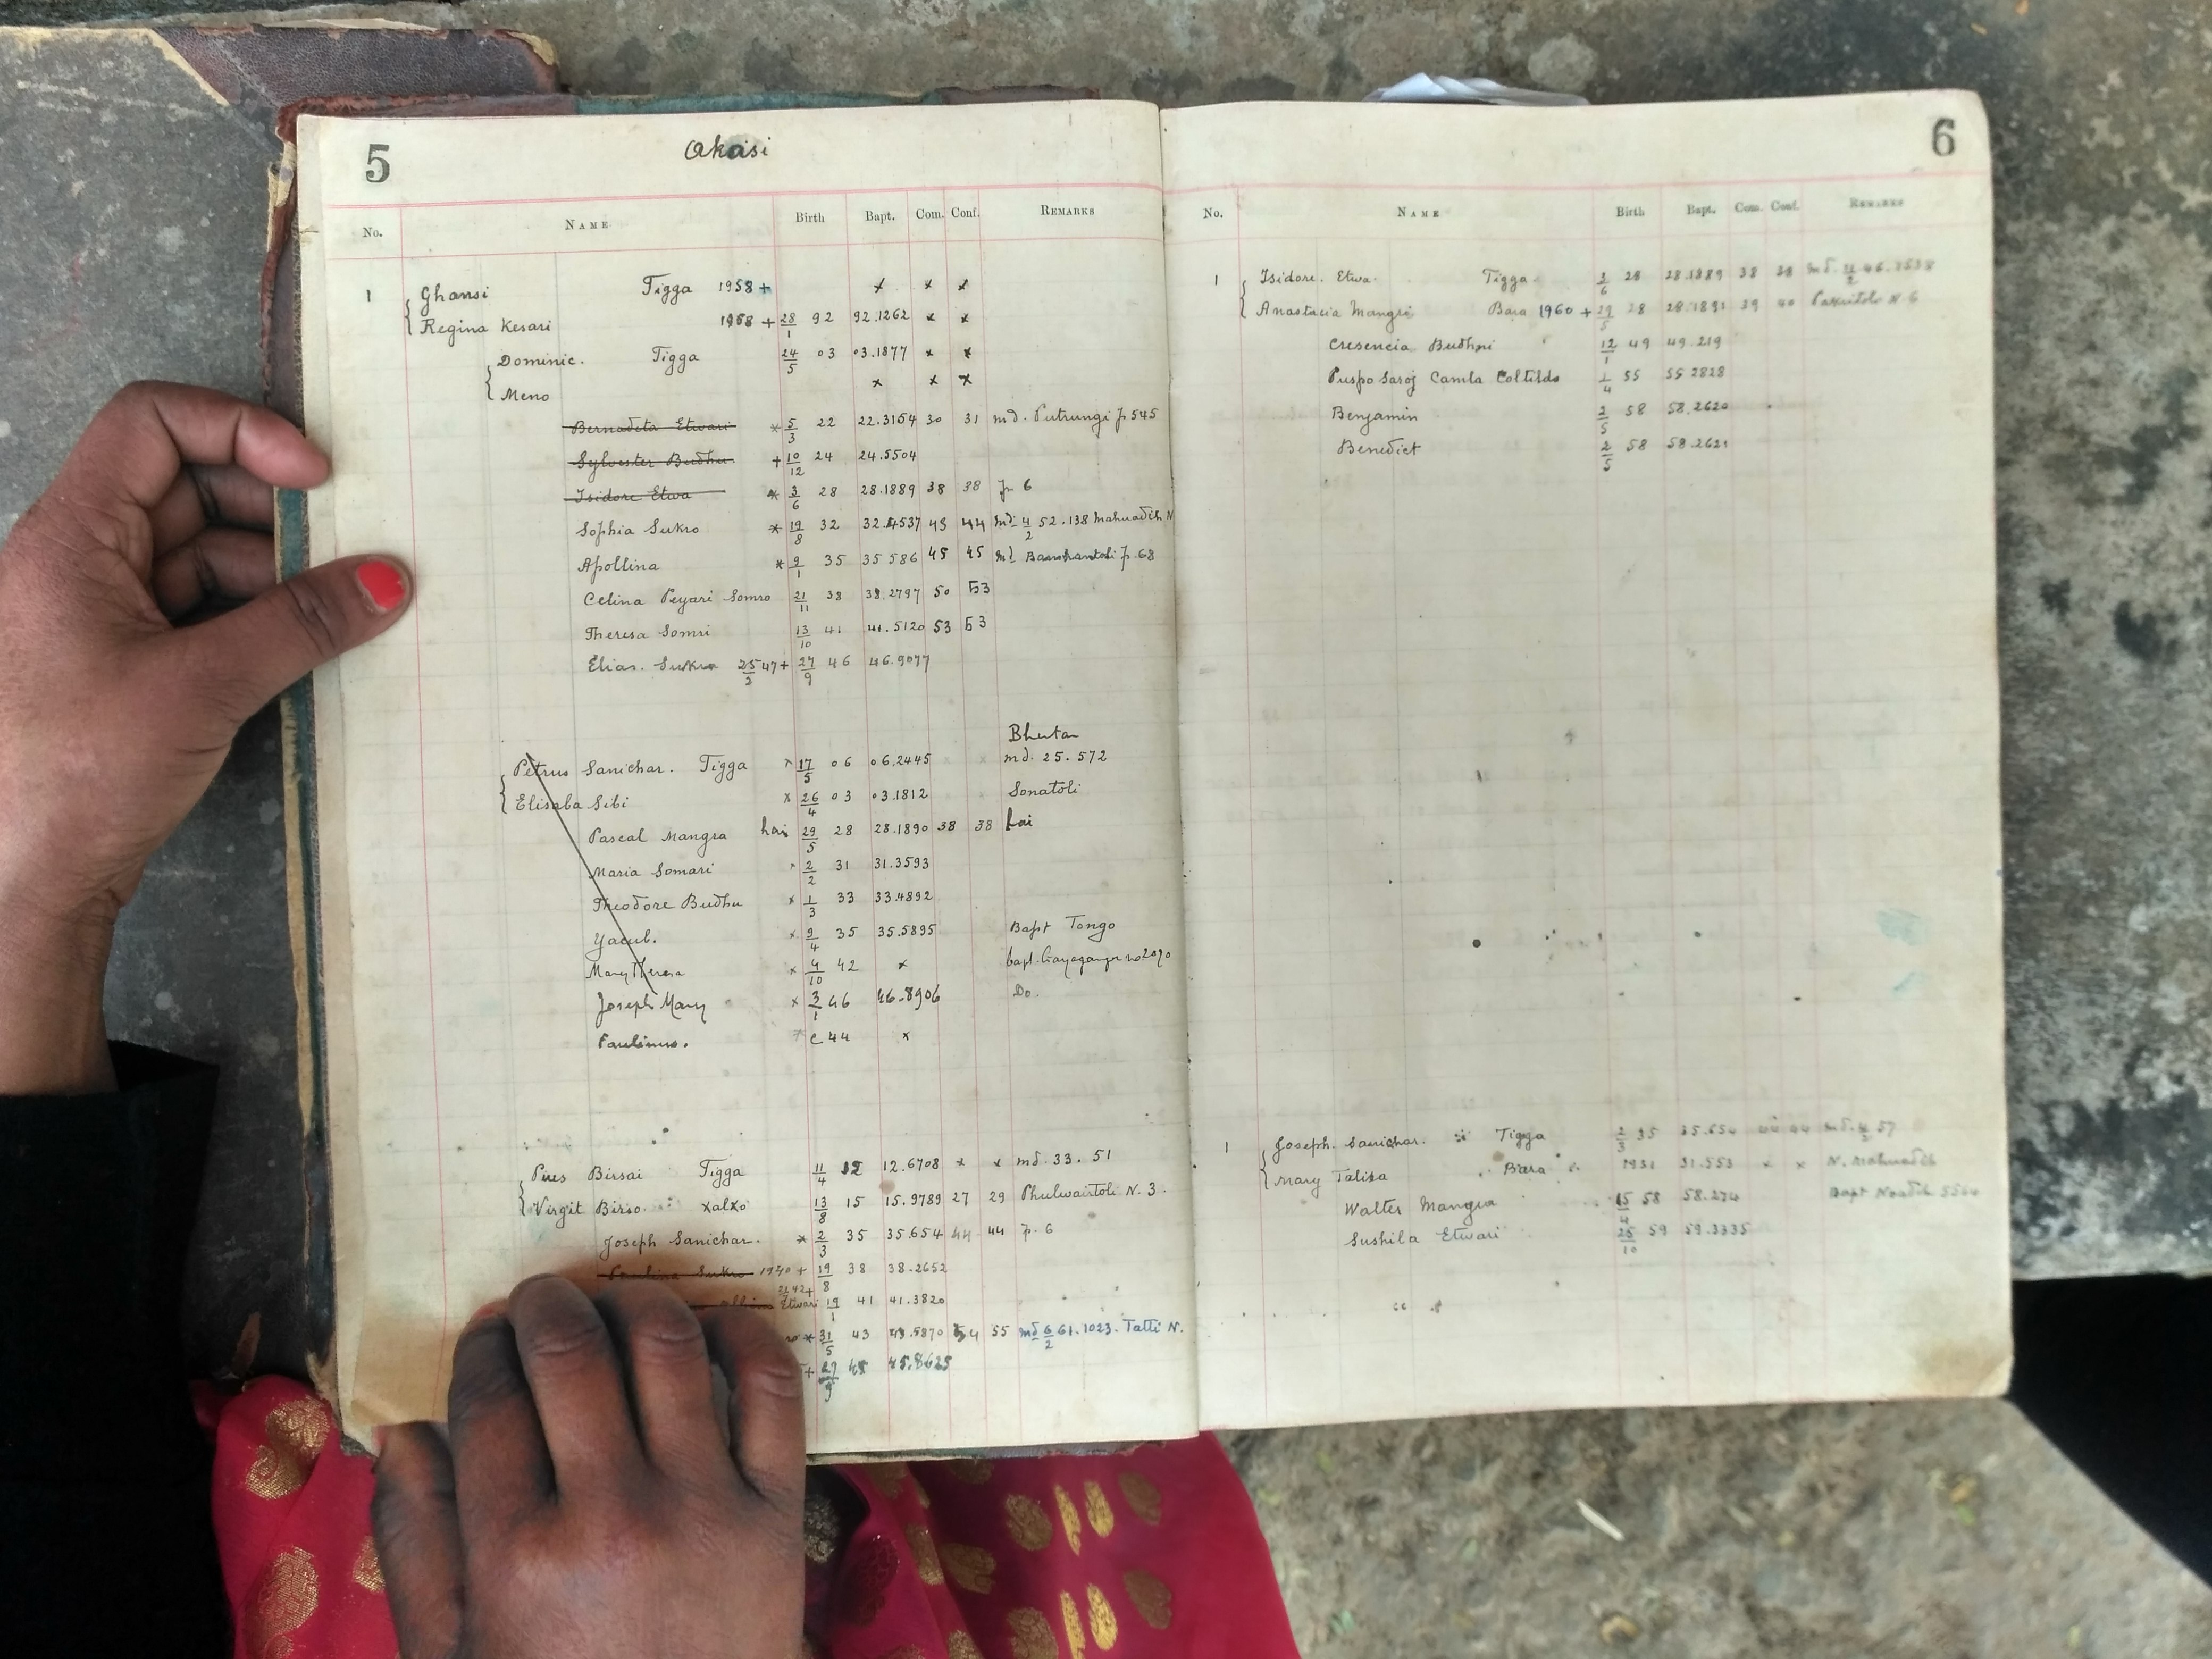 5
Akasi
No. NAME Birth Bapt. Com. Conf. REMARKS
1 Ghansi Tigga 1958 + x x x
Regina Kesari 1958 + 28/1 92 92.1262 x x
Dominic. Tigga 24/5 03 03.1877 x x
Meno x x x
Bernadeta Etwari * 5/3 22 22.3154 30 31 md. Putrungi p 545
Sylvester Budhu + 10/12 24 24.5504
Isidore Etwa * 3/6 28 28.1889 38 38 p. 6
Sophia Sukro * 19/8 32 32.4537 43 44 md 4/2 52.138 Mahuadih N
Apollina * 9/1 35 35 586 45 45 md p. 68
Celina Peyari Somro 21/11 38 38.2797 50 53
Theresa Somri 13/10 41 41.5120 53 53
Elias. Sukra 25/2 47 + 27/9 46 46.9077
Bhutan
Petrus Sanichar. Tigga x 17/5 06 06.2445 md. 25. 572
Elisaba Sibi x 26/4 03 03.1812 Sonatoli
Pascal Mangra hai 29/5 28 28.1890 38 38 hai
Maria Somari x 2/2 31 31.3593
Theodore Budhu x 1/3 33 33.4892
Yacub. x 9/4 35 35.5895 Bapt Tongo
Mary Theresa x 4/10 42 x bapt.
Joseph Mary x 3/1 46 46.8906 Do.
Paulinus. x c 44 x
Pius Birsai Tigga 11/4 12 12.6708 x x md. 33. 51
Virgit Birso. xalxo 13/8 15 15.9789 27 29 Phulwartoli N. 3.
Joseph Sanichar. * 2/3 35 35.654 44 44 p. 6
Paulina Sukro 1940 + 19/8 38 38.2652
Etwari 19/1 41 41.3820
* 31/5 43 43.5870 54 55 md 6/2 61.1023. Tatti N.
+ 27/9 45 45.8625
6
No. NAME Birth Bapt. Com. Conf. REMARKS
1 Isidore. Etwa. Tigga 3/6 28 28.1889 38 38 md.
Anastacia Mangri Bara 1960 + 29/5 28 28.1891 39 40 N. 6
Cresencia Budhni 12/1 49 49.219
Puspo Saroj Camla Coltilda 1/4 55 55 2828
Benjamin 2/5 58 58.2620
Benedict 2/5 58 58.2621
1 Joseph. Sanichar. Tigga 2/3 35 35.654 44 44 md. 57
Mary Taliza Bara 1931 31.553 x x N. Mahuadih
Walter Mangra 15/4 58 58.274 Bapt
Sushila Etwari 25/10 59 59.3335